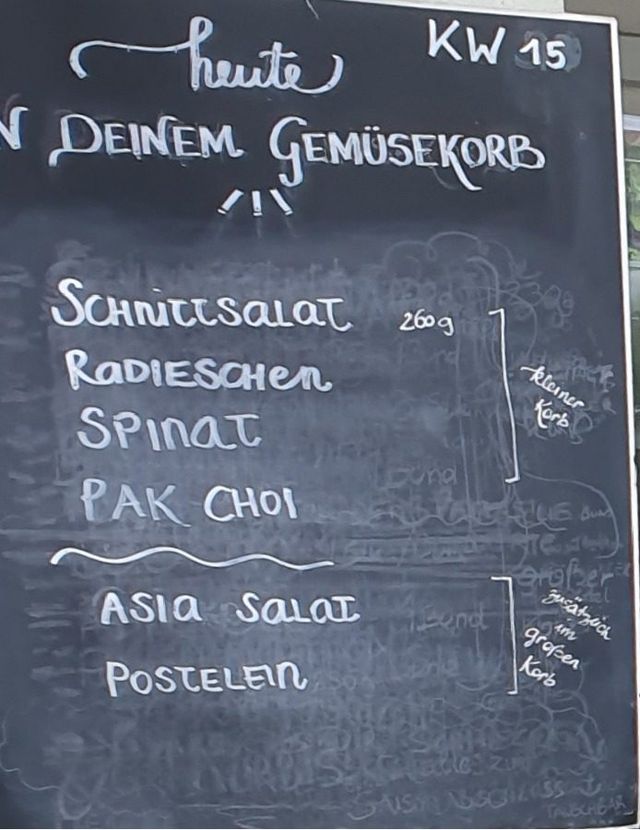 heute KW 15
N DEINEM GEMÜSEKORB
!!!
SCHNITTSALAT 260g
RADIESCHEN
SPINAT
PAK CHOI
kleiner
Korb
ASIA SALAT
POSTELEIN
zusätzlich
im
großen
Korb